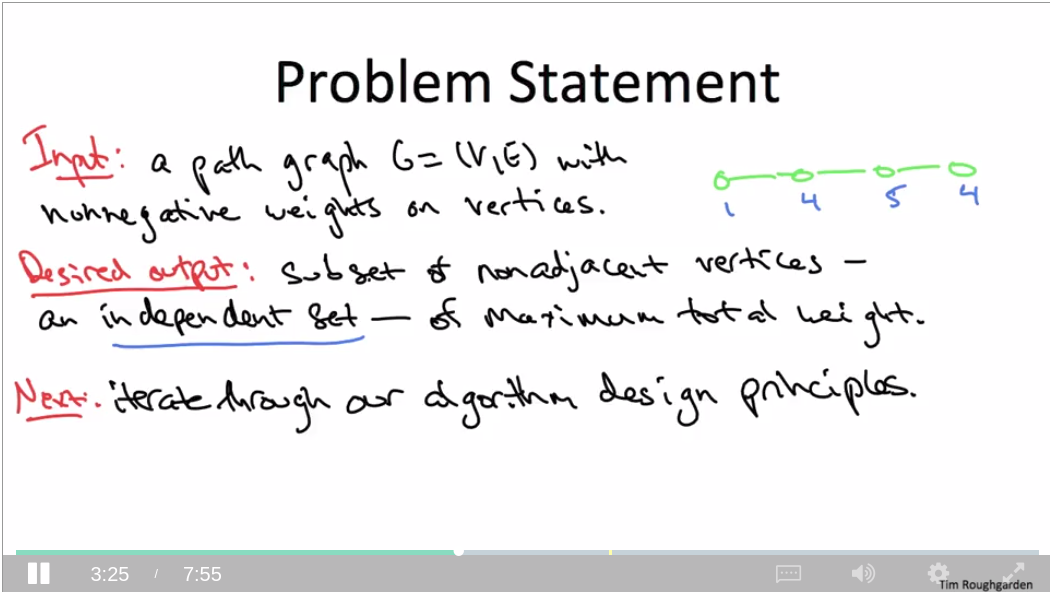 Problem Statement
Input: a path graph G=(V,E) with
nonnegative weights on vertices.
1 4 5 4
Desired output: subset of nonadjacent vertices –
an independent set – of maximum total weight.
Next: iterate through our algorithm design principles.
3:25 / 7:55
Tim Roughgarden